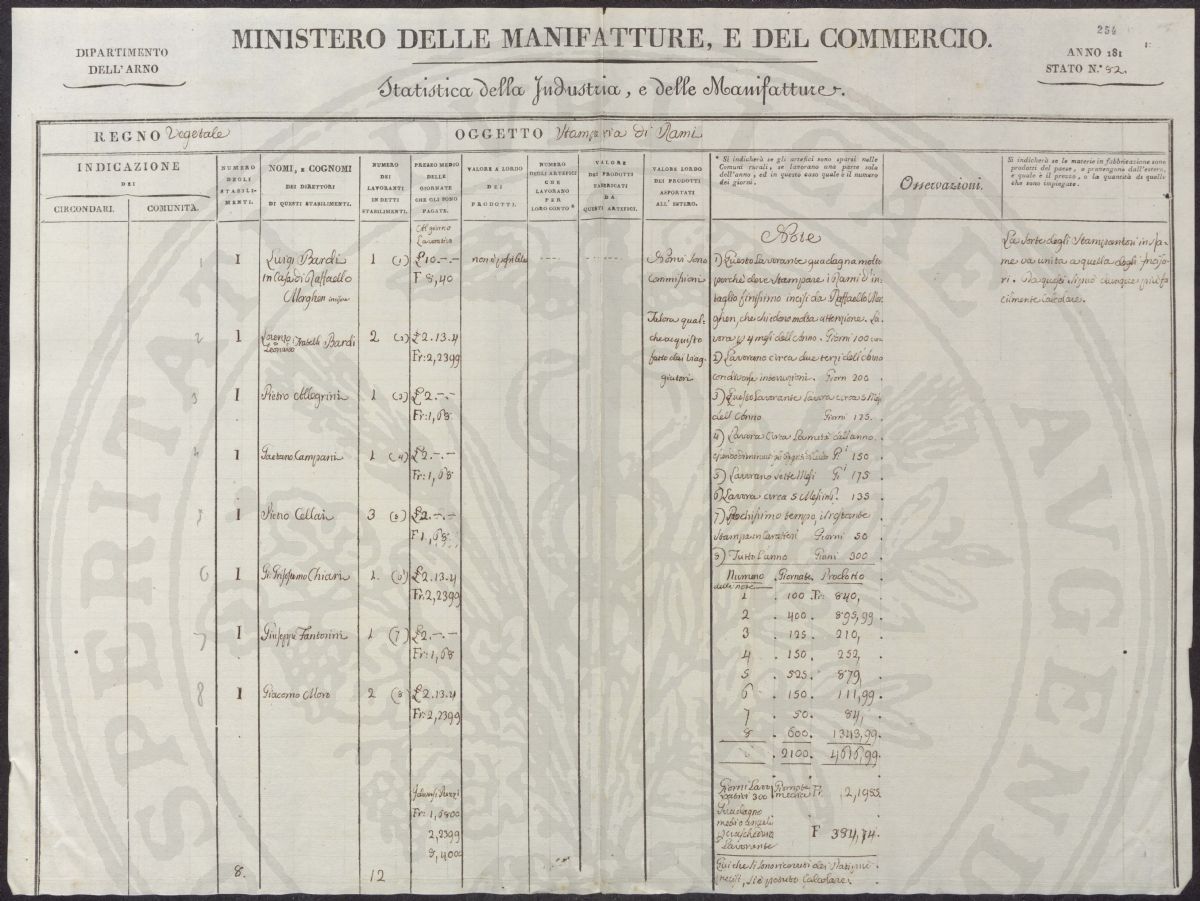 254
DIPARTIMENTO
DELL'ARNO
MINISTERO DELLE MANIFATTURE, E DEL COMMERCIO.
ANNO 181
STATO N.° 82.
Statistica della Industria, e delle Manifatture.
REGNO Vegetale
OGGETTO Stamperia di Rami
INDICAZIONE
DEI
CIRCONDARI.
COMUNITA.
NUMERO
DEGLI
STABILI-
MENTI.
NOMI, E COGNOMI
DEI DIRETTORI
DI QUESTI STABILIMENTI.
NUMERO
DEI
LAVORANTI
IN DETTI
STABILIMENTI.
PREZZO MEDIO
DELLE
GIORNATE
CHE GLI SONO
PAGATE.
VALORE A LORDO
DEI
PRODOTTI.
NUMERO
DEGLI ARTEFICI
CHE
LAVORANO
PER
LORO CONTO *
VALORE
DEI PRODOTTI
FABBRICATI
DA
QUESTI ARTEFICI.
VALORE LORDO
DEI PRODOTTI
ASPORTATI
ALL' ESTERO.
* Si indicherà se gli artefici sono sparsi nelle
Comuni rurali, se lavorano una parte sola
dell'anno, ed in questo caso quale è il numero
dei giorni.
Osservazioni.
Si indicherà se le materie in fabbricazione sono
prodotti del paese, o provengono dall'estero,
e quale è il prezzo, o la quantità di quelle
che sono impiegate.
Al giorno
Lavorativo
1
1
Luigi Bardi
in Casa di Raffaello
Morghen
1 (1)
£ 10.-.-
F 8,40
non è possibile
Non vi sono
Commissioni
Talora qual-
che acquisto
fatto dai viag-
giatori
2
1
Lorenzo
Leonardo
Fratelli Bardi
2 (2)
£ 2.13.4
Fr: 2,2399
3
1
Pietro Allegrini
1 (3)
£ 2.-.-
Fr: 1,68
4
1
Gaetano Campani
1 (4)
£ 2.-.-
Fr: 1,68
5
1
Pietro Cellai
3 (5)
£ 2.-.-
F 1,68
6
1
Chiari
1. (6)
£ 2.13.4
Fr: 2,2399
7
1
Giuseppe Fantorini
1 (7)
£ 2.-.-
Fr: 1,68
8
1
Giacomo Moro
2 (8)
£ 2.13.4
Fr: 2,2399
Fr: 1,6800
2,2399
8,4000
8.
12
Note
1) Questo Lavorante guadagna molto
perchè deve Stampare i Rami d'in-
taglio finissimo incisi da Raffaello Mor-
ghen, che chiedono molta attenzione. La-
vora p 4 mesi dell'Anno. Giorni 100
2) Lavorano circa due terzi dell'Anno
con diverse interruzioni. Giorni 200
3) Questo Lavorante lavora circa 5 Mesi
dell'Anno Giorni 125.
4) Lavora Circa la metà dell'anno
150
5) Lavorano sette Mesi Gi 175
6) Lavora circa 5 Mesi 135
7) Pochissimo tempo, il restante
stampa in Caratteri Giorni 50
8) Tutto l'anno Giorni 300
Numero
delle note
Giornate Prodotto
1 . 100 . Fr: 840,
2 . 400 . 895,99
3 . 125 . 210,
4 . 150 . 252,
5 . 525 . 879,
6 . 150 . 111,99
7 . 50 . 84,
8 . 600. 1343,99
2100. 4616,99
Giorni Lavo-
rativi 300
Giornata
media Fr. 2,1985
Guadagno
medio annuale
p ciascheduno
Lavorante
F 384,74.
La sorte degli Stampatori in ra-
me va unita a quella degli Incisori.